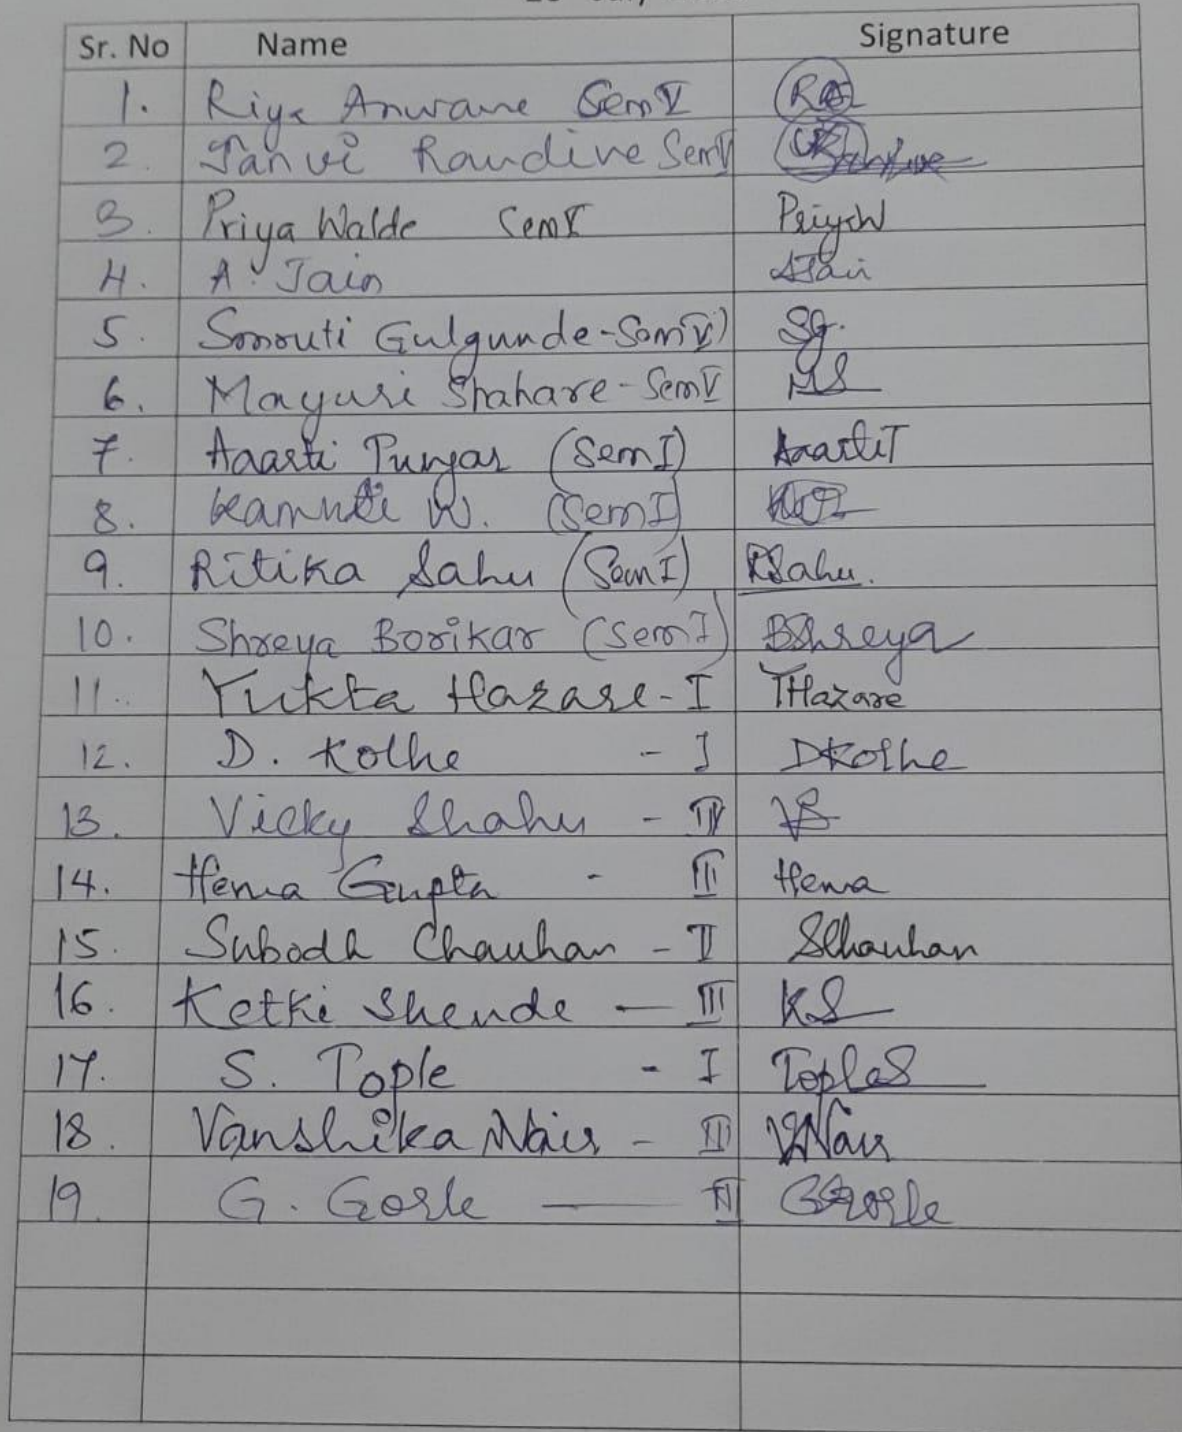 Sr. No Name Signature
1. Riya Anwane Sem V
2. Tanvi Raudive Sem V
3. Priya Walde Sem V PriyaW
4. A. Jain AJain
5. Smruti Gulgunde - Sem V) Sg.
6. Mayuri Shahare - Sem V MS
7. Aaarti Punjar (Sem I) AaartiT
8. W. (Sem I)
9. Ritika Sahu (Sem I) RSahu.
10. Shreya Borikar (Sem I) BShreya
11. Yukta Hazare - I YHazare
12. D. Kolhe - I DKolhe
13. Vicky Shahu - IV VS
14. Hema Gupta - III Hema
15. Subodh Chauhan - II SChauhan
16. Ketki Shende — III KS
17. S. Tople - I TopleS
18. Vanshika Nair - III VNair
19. G. Gorle — GGorle